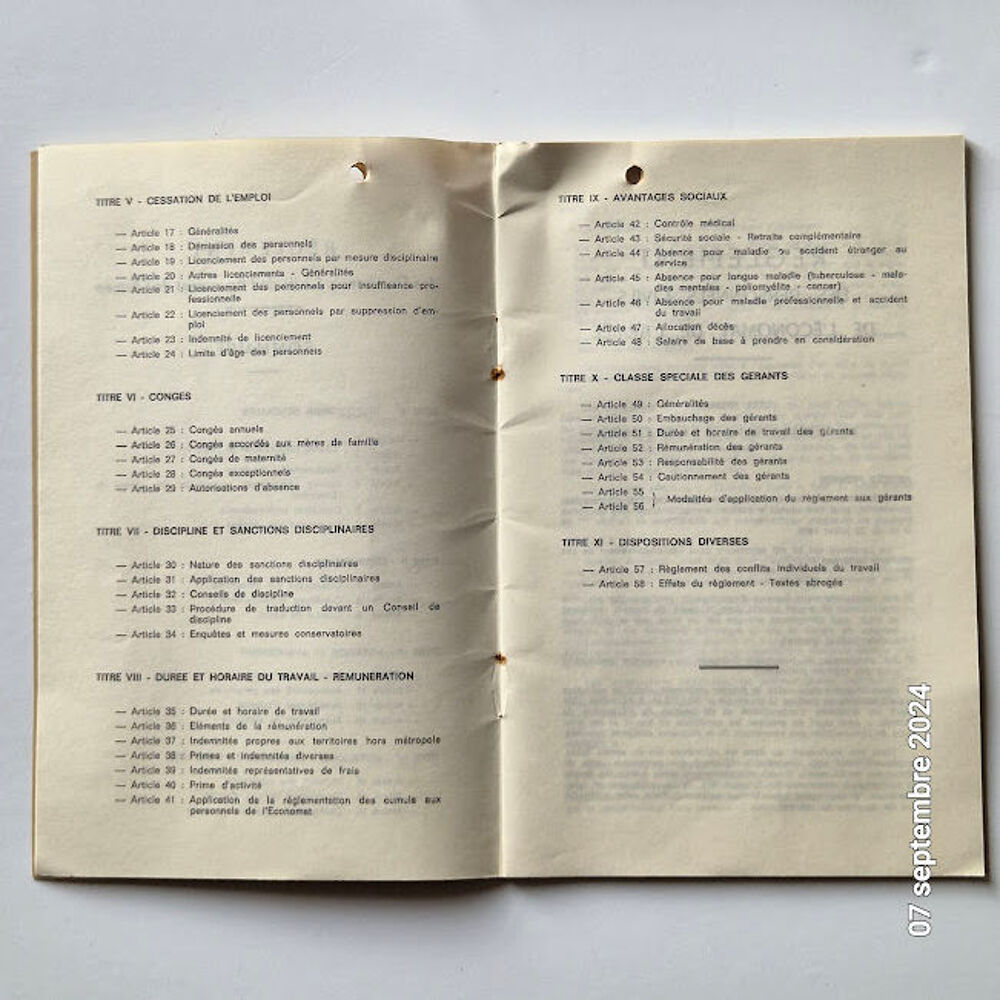 TITRE V - CESSATION DE L'EMPLOI
— Article 17 : Généralités
— Article 18 : Démission des personnels
— Article 19 : Licenciement des personnels par mesure disciplinaire
— Article 20 : Autres licenciements - Généralités
— Article 21 : Licenciement des personnels pour insuffisance pro-
fessionnelle
— Article 22 : Licenciement des personnels par suppression d'em-
ploi
— Article 23 : Indemnité de licenciement
— Article 24 : Limite d'âge des personnels
TITRE VI - CONGES
— Article 25 : Congés annuels
— Article 26 : Congés accordés aux mères de famille
— Article 27 : Congés de maternité
— Article 28 : Congés exceptionnels
— Article 29 : Autorisations d'absence
TITRE VII - DISCIPLINE ET SANCTIONS DISCIPLINAIRES
— Article 30 : Nature des sanctions disciplinaires
— Article 31 : Application des sanctions disciplinaires
— Article 32 : Conseils de discipline
— Article 33 : Procédure de traduction devant un Conseil de
discipline
— Article 34 : Enquêtes et mesures conservatoires
TITRE VIII - DUREE ET HORAIRE DU TRAVAIL - REMUNERATION
— Article 35 : Durée et horaire de travail
— Article 36 : Eléments de la rémunération
— Article 37 : Indemnités propres aux territoires hors métropole
— Article 38 : Primes et indemnités diverses
— Article 39 : Indemnités représentatives de frais
— Article 40 : Prime d'activité
— Article 41 : Application de la réglementation des cumuls aux
personnels de l'Economat
TITRE IX - AVANTAGES SOCIAUX
— Article 42 : Contrôle médical
— Article 43 : Sécurité sociale - Retraite complémentaire
— Article 44 : Absence pour maladie ou accident étranger au
service
— Article 45 : Absence pour longue maladie (tuberculose - mala-
dies mentales - poliomyélite - cancer)
— Article 46 : Absence pour maladie professionnelle et accident
du travail
— Article 47 : Allocation décès
— Article 48 : Salaire de base à prendre en considération
TITRE X - CLASSE SPECIALE DES GERANTS
— Article 49 : Généralités
— Article 50 : Embauchage des gérants
— Article 51 : Durée et horaire de travail des gérants
— Article 52 : Rémunération des gérants
— Article 53 : Responsabilité des gérants
— Article 54 : Cautionnement des gérants
— Article 55
— Article 56 } Modalités d'application du règlement aux gérants
TITRE XI - DISPOSITIONS DIVERSES
— Article 57 : Règlement des conflits individuels du travail
— Article 58 : Effets du règlement - Textes abrogés
07 septembre 2024